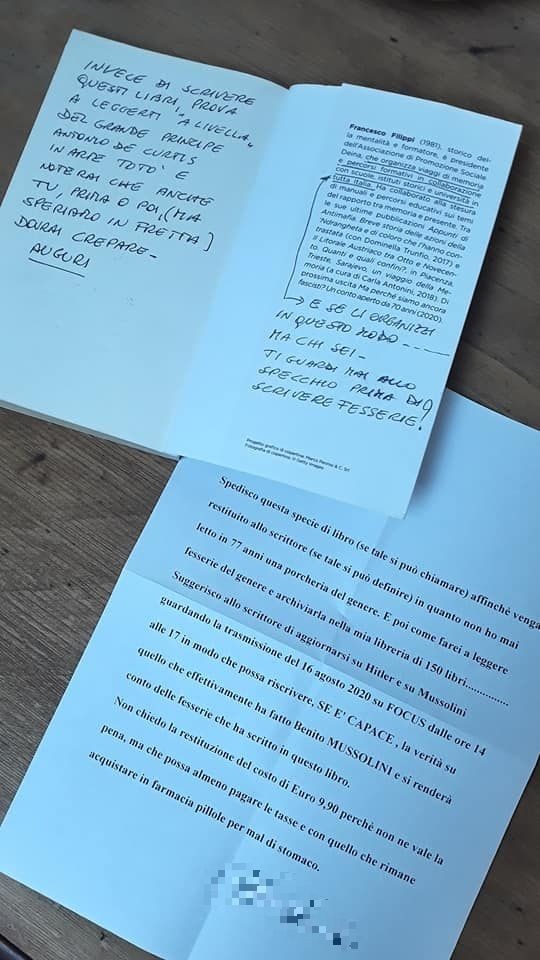 INVECE DI SCRIVERE
QUESTI LIBRI, PROVA
A LEGGERTI "A LIVELLA"
DEL GRANDE PRINCIPE
ANTONIO DE CURTIS
IN ARTE TOTO' E
NOTERAI CHE ANCHE
TU, PRIMA O POI, (MA
SPERIAMO IN FRETTA)
DOVRAI CREPARE-
AUGURI
Francesco Filippi (1981), storico del-
la mentalità e formatore, è presidente
dell'Associazione di Promozione Sociale
Deina, che organizza viaggi di memoria
e percorsi formativi in collaborazione
con scuole, istituti storici e università in
tutta Italia. Ha collaborato alla stesura
di manuali e percorsi educativi sui temi
del rapporto tra memoria e presente. Tra
le sue ultime pubblicazioni Appunti di
Antimafia. Breve storia delle azioni della
'Ndrangheta e di coloro che l'hanno con-
trastata (con Dominella Trunfio, 2017) e
Il Litorale Austriaco tra Otto e Novecen-
to. Quanti e quali confini?, in Piacenza,
Trieste, Sarajevo, un viaggio della Me-
moria (a cura di Carla Antonini, 2018). Di
prossima uscita Ma perché siamo ancora
fascisti? Un conto aperto da 70 anni (2020).
E SE LI ORGANIZZI
IN QUESTO MODO-----
MA CHI SEI-
TI GUARDI MAI ALLO
SPECCHIO PRIMA DI
SCRIVERE FESSERIE?
Progetto grafico di copertina: Marco Pennisi & C. Srl
Fotografia di copertina: © Getty Images
Spedisco questa specie di libro (se tale si può chiamare) affinchè venga
restituito allo scrittore (se tale si può definire) in quanto non ho mai
letto in 77 anni una porcheria del genere. E poi come farei a leggere
fesserie del genere e archiviarla nella mia libreria di 150 libri..............
Suggerisco allo scrittore di aggiornarsi su Hitler e su Mussolini
guardando la trasmissione del 16 agosto 2020 su FOCUS dalle ore 14
alle 17 in modo che possa riscrivere, SE E' CAPACE , la verità su
quello che effettivamente ha fatto Benito MUSSOLINI e si renderà
conto delle fesserie che ha scritto in questo libro.
Non chiedo la restituzione del costo di Euro 9,90 perchè non ne vale la
pena, ma che possa almeno pagare le tasse e con quello che rimane
acquistare in farmacia pillole per mal di stomaco.